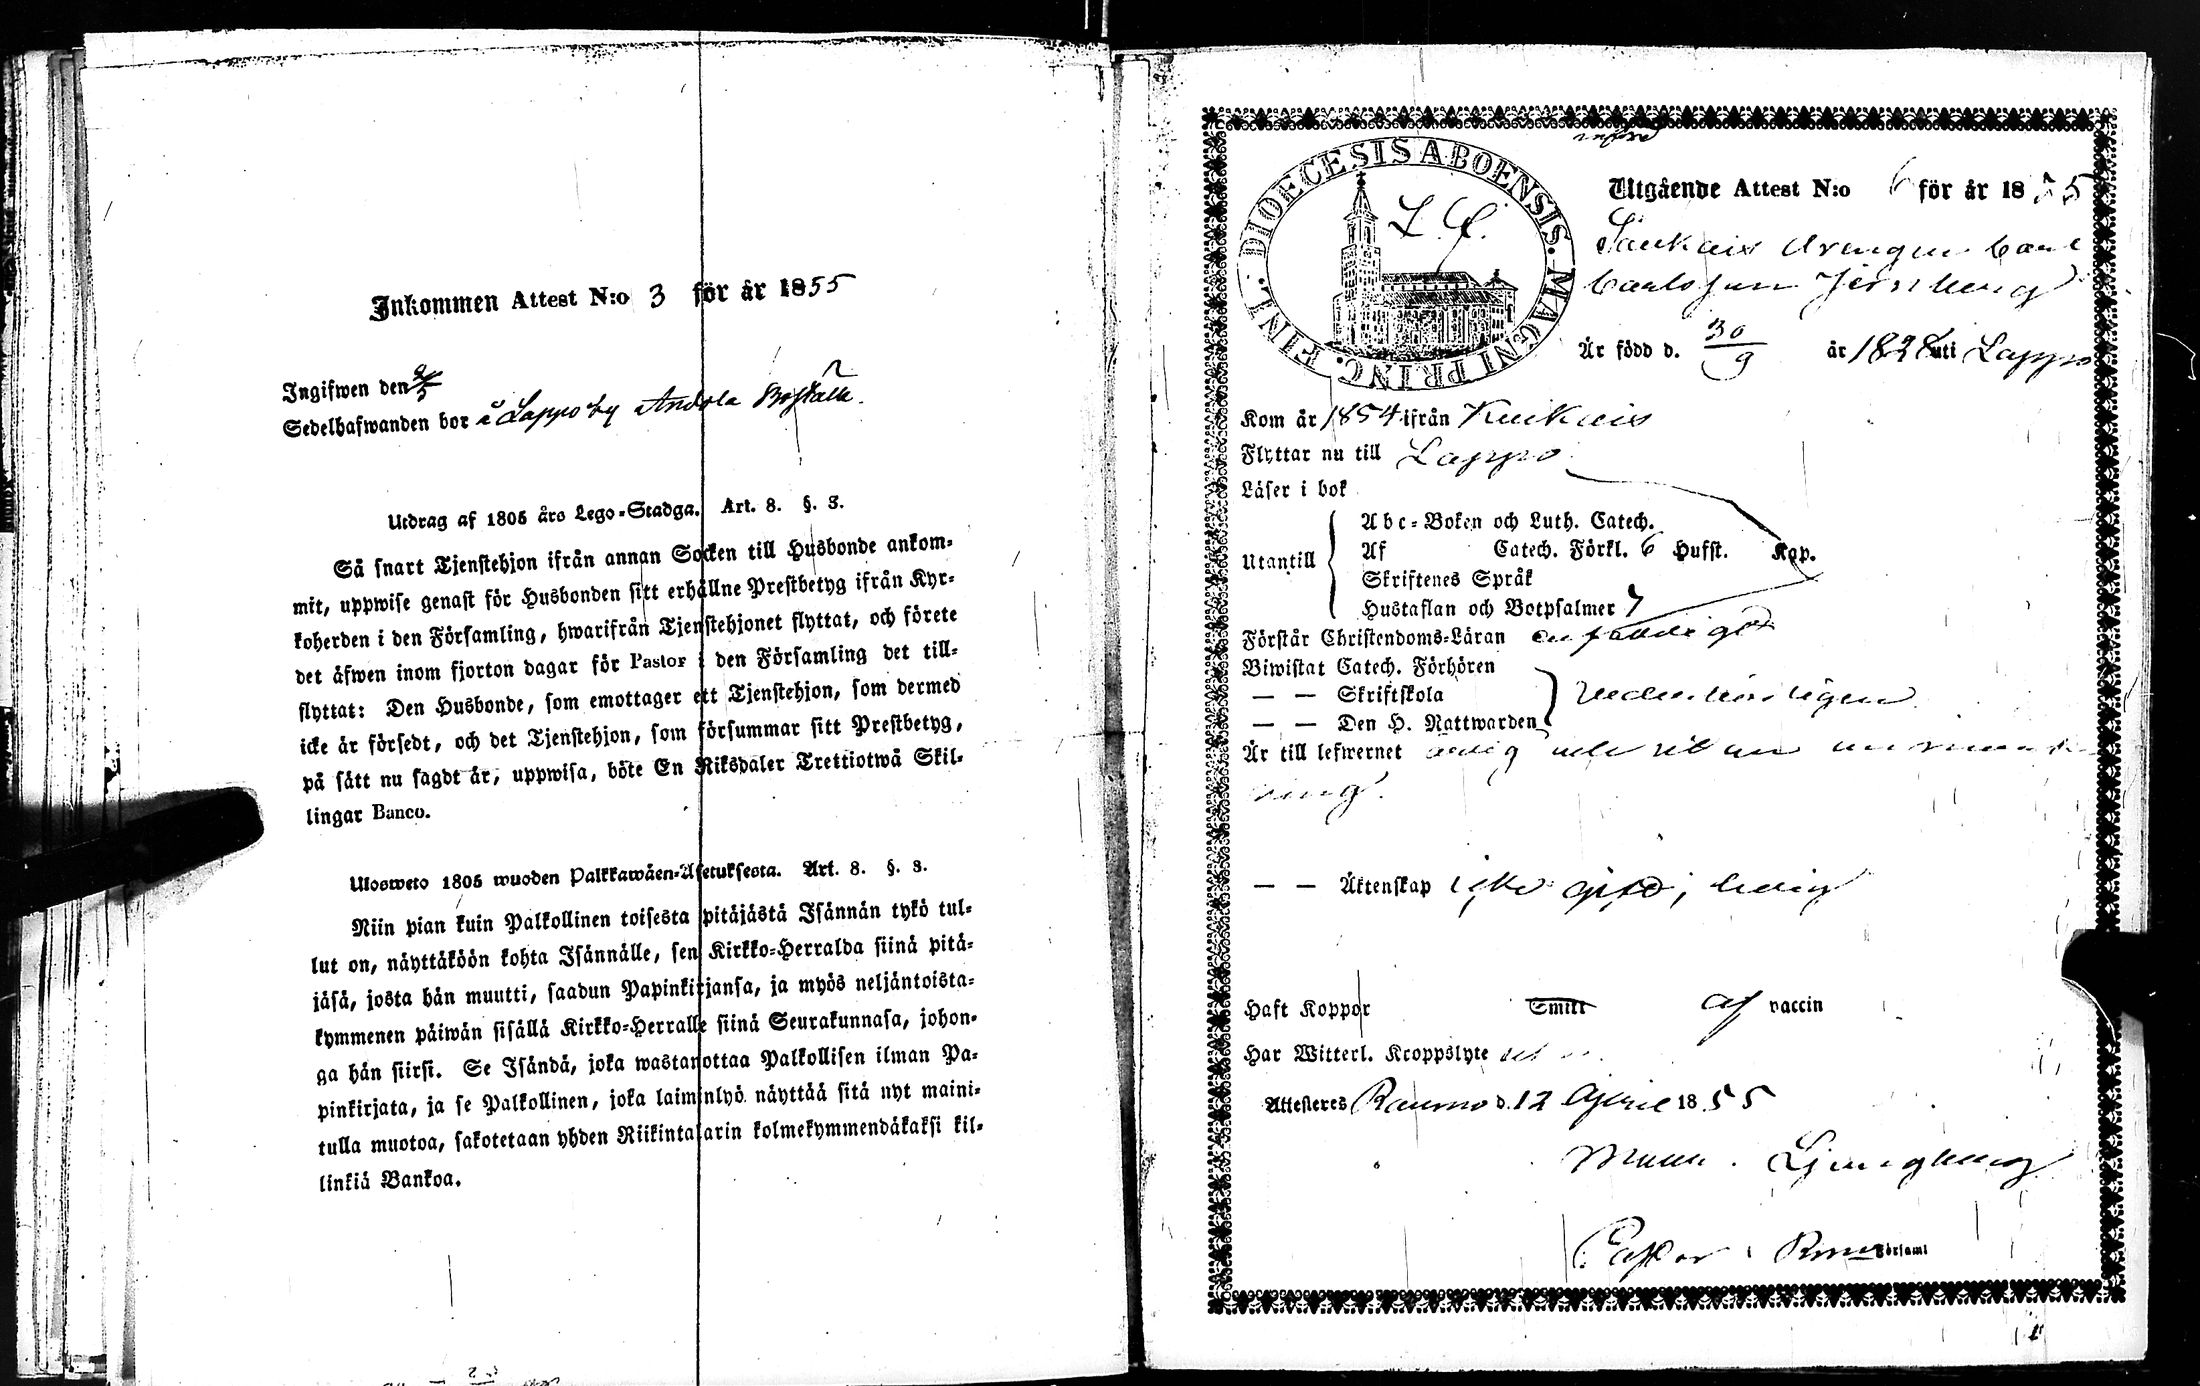 Inkommen Attest N:o 3 för år 1855
Ingifwen den
Sedelhafwanden bor i Lappo by Andola Boställe.
Utdrag af 1805 års Lego-Stadga. Art. 8. §. 3.
Så snart Tjenstehjon ifrån annan Socken till Husbonde ankom-
mit, uppwise genast för Husbonden sitt erhållne Prestbetyg ifrån Kyr-
koherden i den Församling, hwarifrån Tjenstehjonet flyttat, och förete
det äfwen inom fjorton dagar för Pastor i den Församling det till-
flyttat: Den Husbonde, som emottager ett Tjenstehjon, som dermed
icke är försedt, och det Tjenstehjon, som försummar sitt Prestbetyg,
på sätt nu sagdt är, uppwisa, böte En Riksdaler Trettiotwå Skil-
lingar Banco.
Ulosweto 1805 wuoden Palkkawäen-Asetuksesta. Art. 8. §. 3.
Niin pian kuin Palkollinen toisesta pitäjästä Isännän tykö tul-
lut on, näyttäköön kohta Isännälle, sen Kirkko-Herralda siinä pitä-
jäsä, josta hän muutti, saadun Papinkirjansa, ja myös neljäntoista-
kymmenen päiwän sisällä Kirkko-Herralle siinä Seurakunnasa, johon-
ga hän siirsi. Se Isändä, joka wastanottaa Palkollisen ilman Pa-
pinkirjata, ja se Palkollinen, joka laiminlyö näyttää sitä nyt maini-
tulla muotoa, sakotetaan yhden Riikintalarin kolmekymmendäkaksi kil-
linkiä Bankoa.
DIOECESIS ABOENSIS. MAGNI PRINC. FINL.
L. C.
Utgående Attest N:o 6 för år 1855
Drengen Carl
Carlsson Jernberg
Är född d. 30/9 år 1828 uti Lappo
Kom år 1854 ifrån
Flyttar nu till Lappo
Läser i bok
Utantill
Abc-Boken och Luth. Catech.
Af Catech. Förkl. 6 Hufst. Kap.
Skriftenes Språk
Hustaflan och Botpsalmer 7
Förstår Christendoms-Läran
Biwistat Catech. Förhören
— — Skriftskola
— — Den H. Nattwarden
vederbörligen
Är till lefwernet
— — Äktenskap icke gift; ledig
Haft Koppor Smitt af vaccin
Har Witterl. Kroppslyte
Attesteres Raumo d. 12 April 1855
Ljungberg
Pastor i Församl